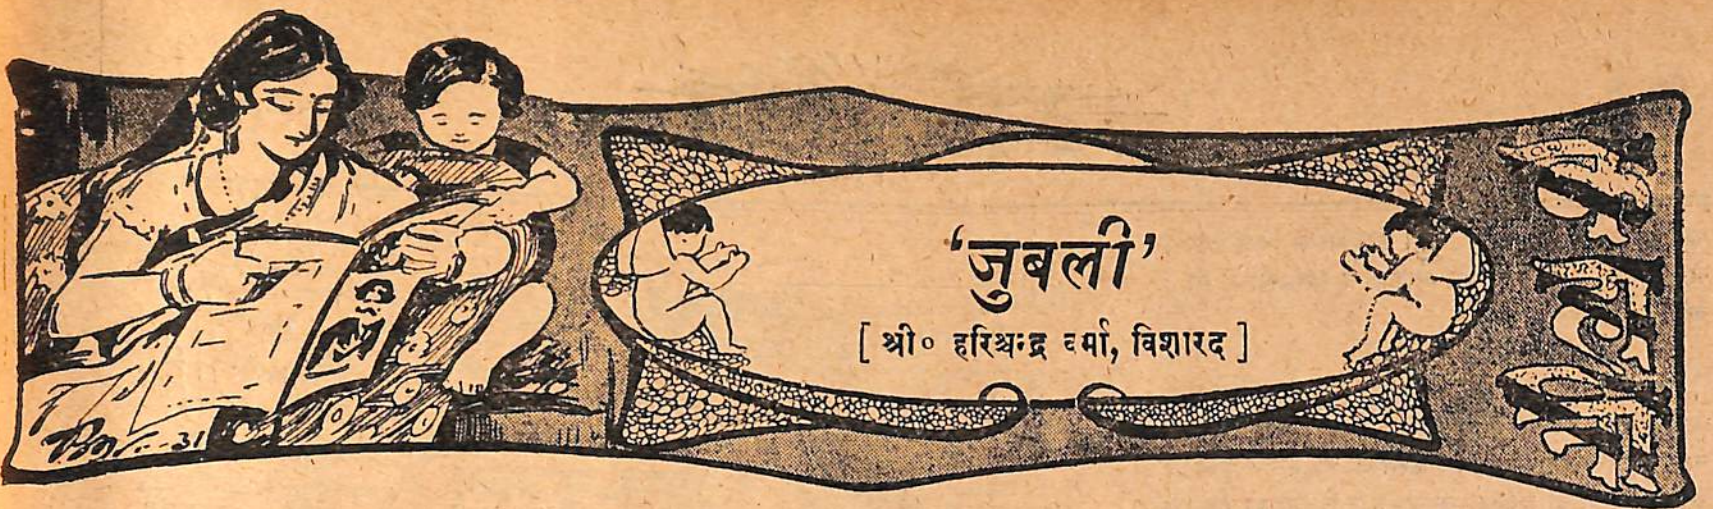 ‘जुबली’
[ श्री० हरिश्चन्द्र वर्मा, विशारद ]